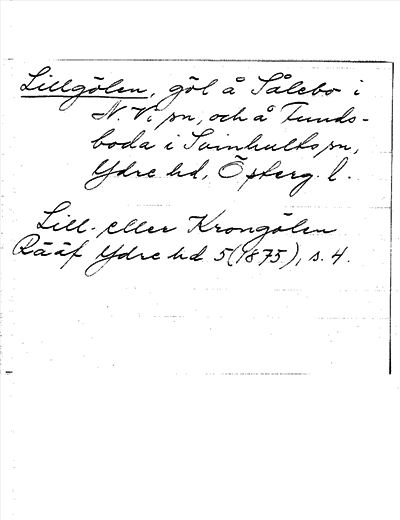 Lillgölen, göl å Sålebo i
N. Vi sn, och å Tunds-
boda i Svinhults sn,
Ydre hd, Österg. l.
Lill- eller Krongölen
Rääf Ydre hd 5 (1875), s. 4.